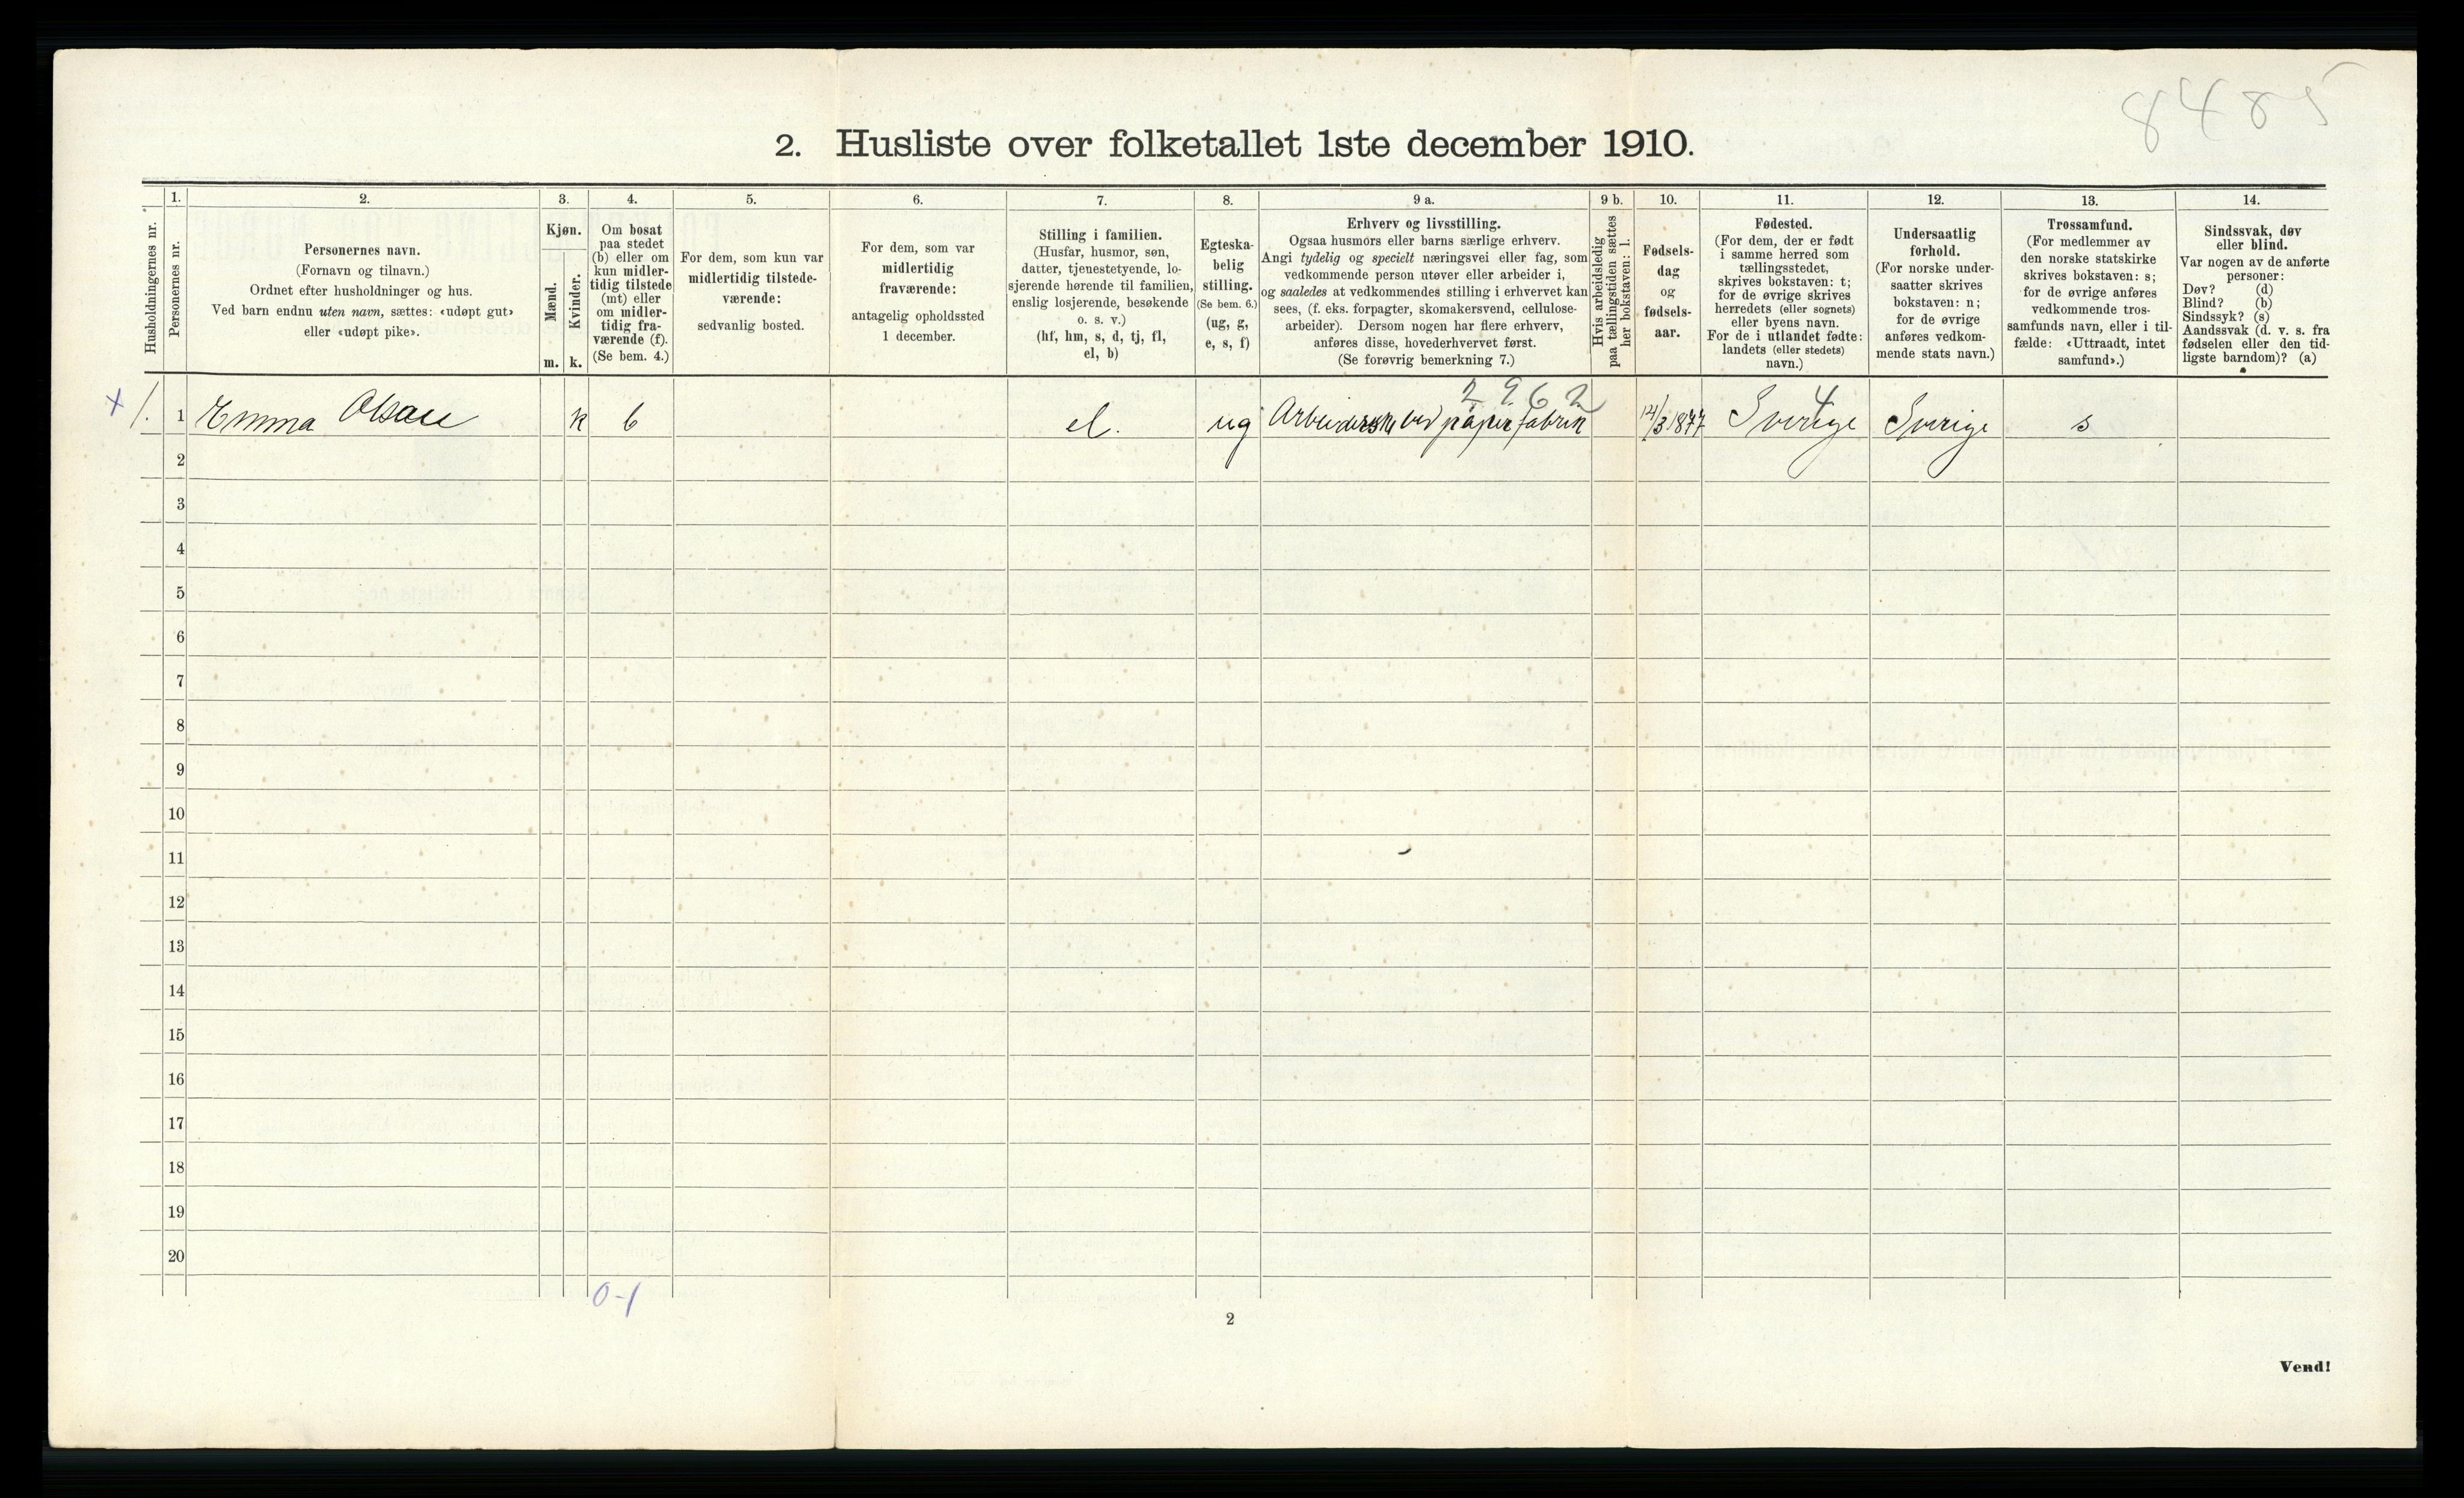 8485
2. Husliste over folketallet 1ste december 1910.
Husholdningernes nr.
1.
Personernes nr.
2.
Personernes navn.
(Fornavn og tilnavn.)
Ordnet efter husholdninger og hus.
Ved barn endnu uten navn, sættes: «udøpt gut»
eller «udøpt pike».
3.
Kjøn.
Mænd.
m.
Kvinder.
k.
4.
Om bosat
paa stedet
(b) eller om
kun midler-
tidig tilstede
(mt) eller
om midler-
tidig fra-
værende (f).
(Se bem. 4.)
5.
For dem, som kun var
midlertidig tilstede-
værende:
sedvanlig bosted.
6.
For dem, som var
midlertidig
fraværende:
antagelig opholdssted
1 december.
7.
Stilling i familien.
(Husfar, husmor, søn,
datter, tjenestetyende, lo-
sjerende hørende til familien,
enslig losjerende, besøkende
o. s. v.)
(hf, hm, s, d, tj, fl,
el, b)
8.
Egteska-
belig
stilling.
(Se bem. 6.)
(ug, g,
e, s, f)
9 a.
Erhverv og livsstilling.
Ogsaa husmors eller barns særlige erhverv.
Angi tydelig og specielt næringsvei eller fag, som
vedkommende person utøver eller arbeider i,
og saaledes at vedkommendes stilling i erhvervet kan
sees, (f. eks. forpagter, skomakersvend, cellulose-
arbeider). Dersom nogen har flere erhverv,
anføres disse, hovederhvervet først.
(Se forøvrig bemerkning 7.)
9 b.
Hvis arbeidsledig
paa tællingstiden sættes
her bokstaven: l.
10.
Fødsels-
dag
og
fødsels-
aar.
11.
Fødested.
(For dem, der er født
i samme herred som
tællingsstedet,
skrives bokstaven: t;
for de øvrige skrives
herredets (eller sognets)
eller byens navn.
For de i utlandet fødte:
landets (eller stedets)
navn.)
12.
Undersaatlig
forhold.
(For norske under-
saatter skrives
bokstaven: n;
for de øvrige
anføres vedkom-
mende stats navn.)
13.
Trossamfund.
(For medlemmer av
den norske statskirke
skrives bokstaven: s;
for de øvrige anføres
vedkommende tros-
samfunds navn, eller i til-
fælde: «Uttraadt, intet
samfund».)
14.
Sindssvak, døv
eller blind.
Var nogen av de anførte
personer:
Døv? (d)
Blind? (b)
Sindssyk? (s)
Aandssvak (d. v. s. fra
fødselen eller den tid-
ligste barndom)? (a)
2962 4
x 1. 1 Emma Olsen k b el. ug Arbeiderske ved papirfabrik 14/3 1877 Sverige Sverige s
2
3
4
5
6
7
8
9
10
11
12
13
14
15
16
17
18
19
20
0-1
2
Vend!